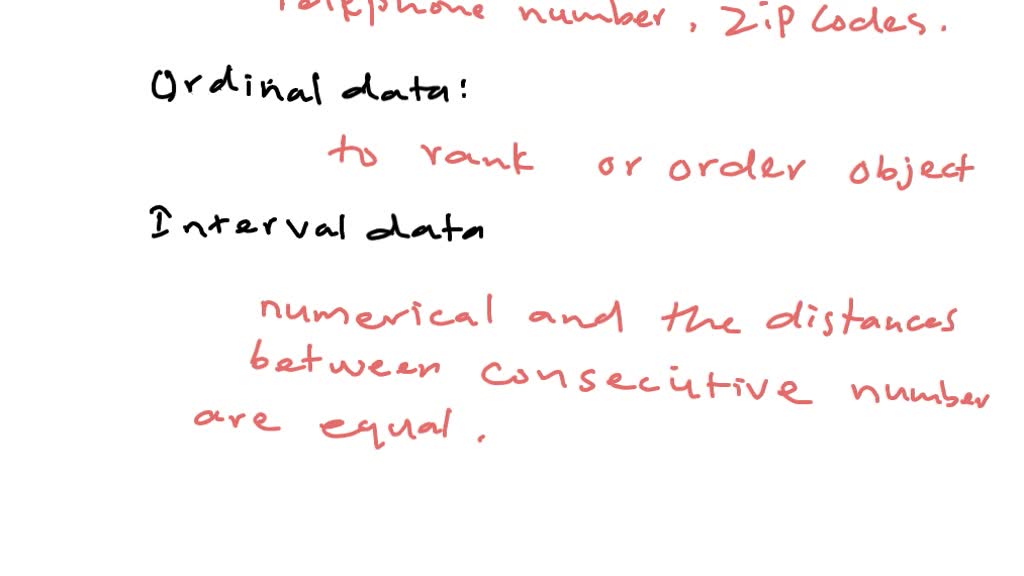 Telephone number, Zip Codes.
Ordinal data:
to rank or order object
Interval data
numerical and the distances
between consecutive number
are equal.